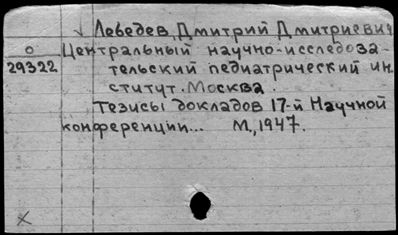 Лебедев, Дмитрий Дмитриевич
О Центральный научно-исследова-
29322 тельский педиатрический ин-
ститут. Москва.
Тезисы докладов 17-й Научной
конференции... М., 1947.